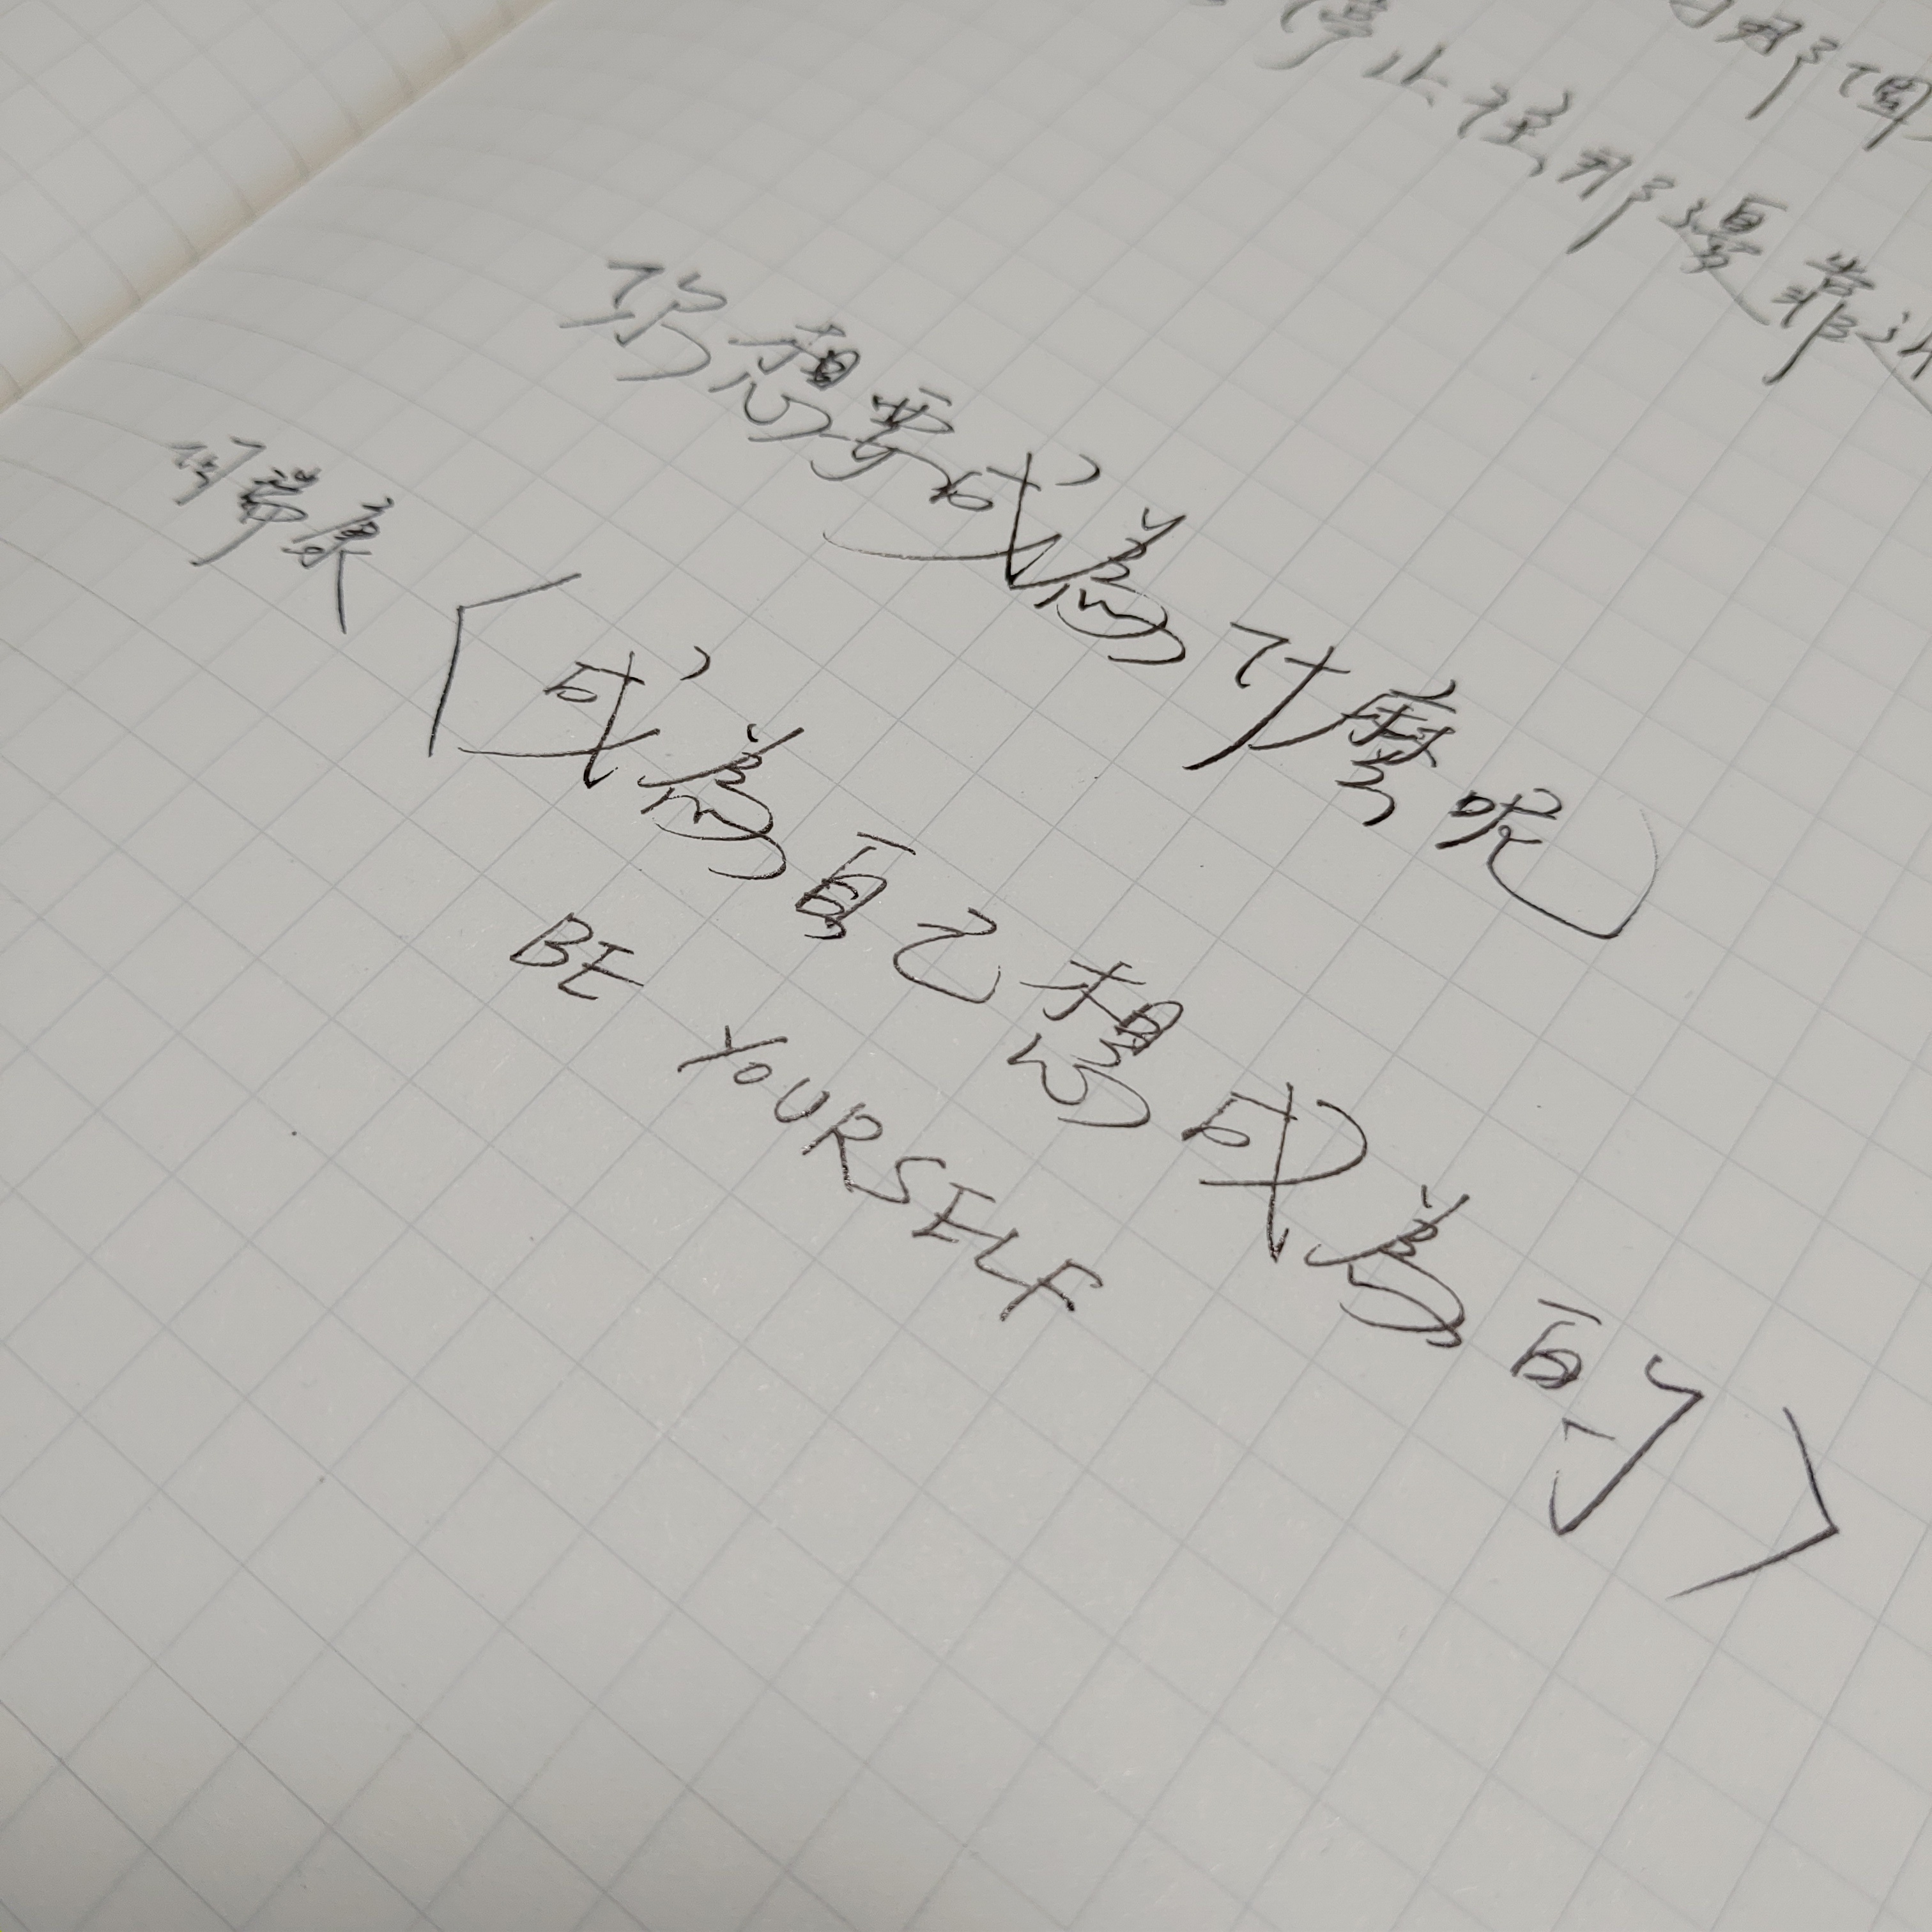 那個
停止往那邊靠近
你想要成為什麼呢
何瑞康〈成為自己想成為的〉
BE YOURSELF